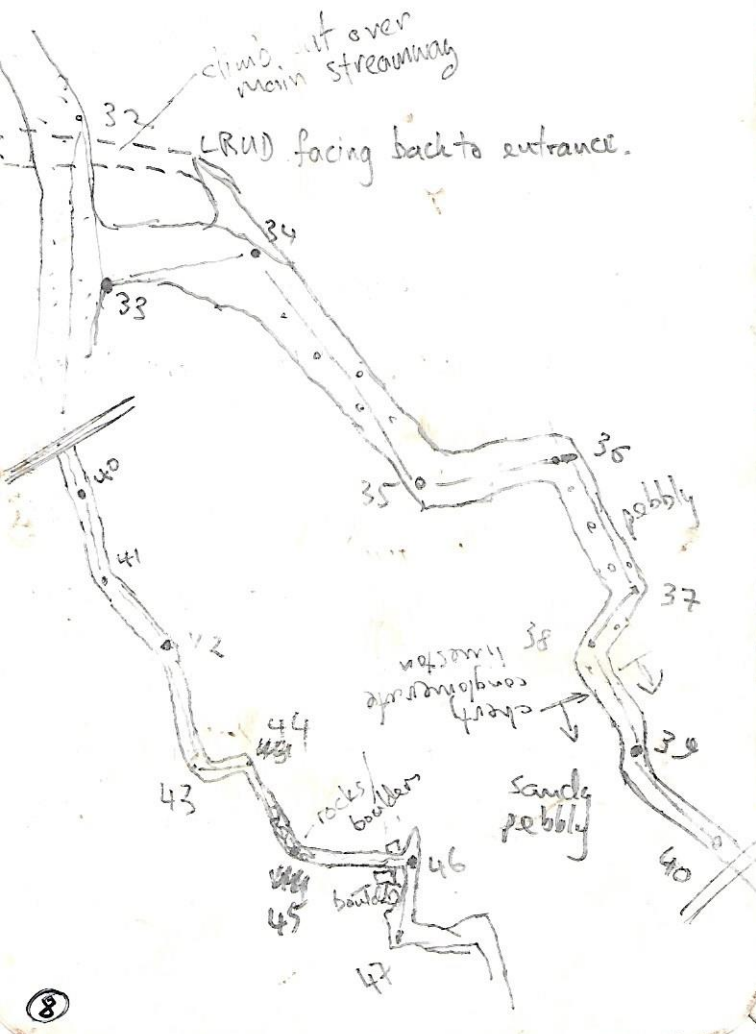 climb out over
main streamway
32
LRUD facing back to entrance.
34
33
36
35
pebbly
40
41
37
38
42
limeston
conglomerate
chert
39
44
43
rocks/
boulders
sandy
pebbly
46
40
boulders
45
47
8